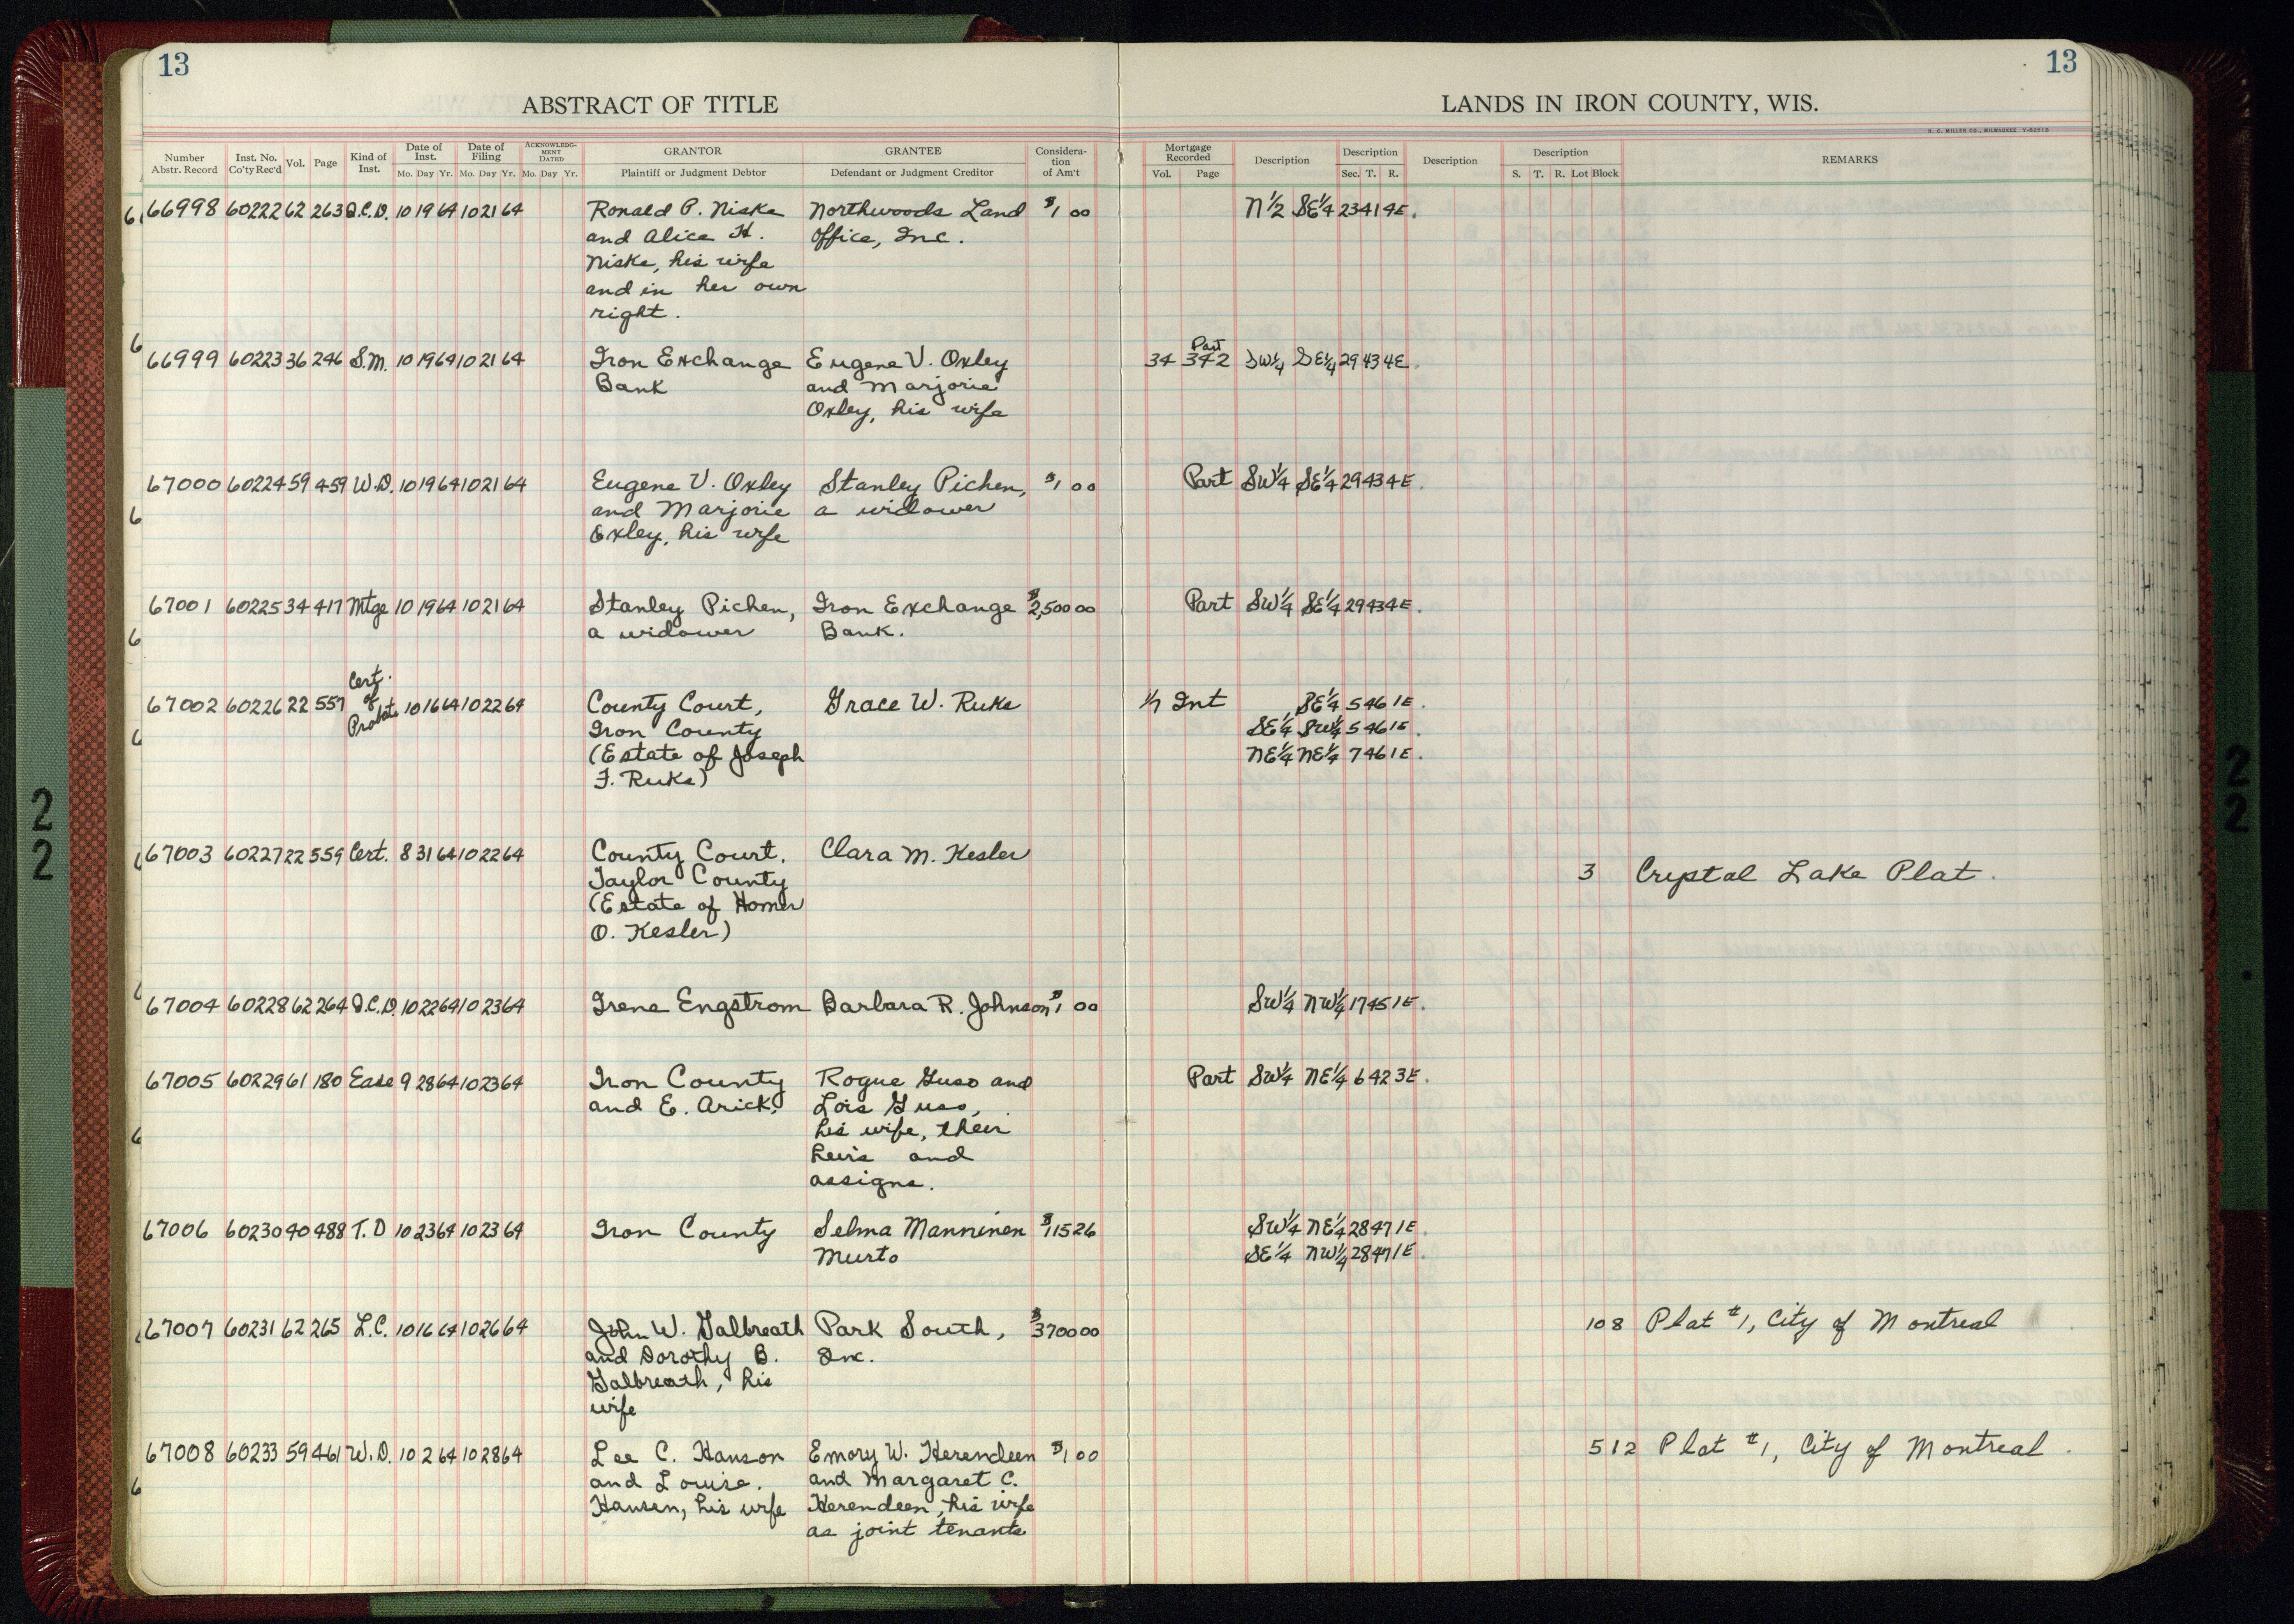 13
13
ABSTRACT OF TITLE
LANDS IN IRON COUNTY, WIS.
H. C. MILLER CO., MILWAUKEE
Number Abstr. Record | Inst. No. Co'ty Rec'd | Vol. | Page | Kind of Inst. | Date of Inst. Mo. Day Yr. | Date of Filing Mo. Day Yr. | ACKNOWLEDGMENT DATED Mo. Day Yr. | GRANTOR Plaintiff or Judgment Debtor | GRANTEE Defendant or Judgment Creditor | Consideration of Am't | Mortgage Recorded Vol. Page | Description | Description Sec. T. R. | Description | Description S. T. R. Lot Block | REMARKS
66998 60222 62 263 Q.C.D. 10 19 64 10 21 64 Ronald P. Niske Northwoods Land $1 00 N 1/2 SE 1/4 23 41 4E.
and Alice H. Office, Inc.
Niske, his wife
and in her own
right.
66999 60223 36 246 S.M. 10 19 64 10 21 64 Iron Exchange Eugene V. Oxley 34 342 Part SW 1/4 SE 1/4 29 43 4E.
Bank and Marjorie
Oxley, his wife
67000 60224 59 459 W.D. 10 19 64 10 21 64 Eugene V. Oxley Stanley Pichen, $1 00 Part SW 1/4 SE 1/4 29 43 4E.
and Marjorie a widower
Exley, his wife
67001 60225 34 417 Mtge 10 19 64 10 21 64 Stanley Pichen, Iron Exchange $2,500 00 Part SW 1/4 SE 1/4 29 43 4E.
a widower Bank.
67002 60226 22 557 Cert. of Probate 10 16 64 10 22 64 County Court, Grace W. Ruke 1/7 Int SE 1/4 5 46 1E.
Iron County SE 1/4 SW 1/4 5 46 1E.
(Estate of Joseph NE 1/4 NE 1/4 7 46 1E.
F. Ruke)
67003 60227 22 559 Cert. 8 31 64 10 22 64 County Court, Clara M. Kesler 3 Crystal Lake Plat.
Taylor County
(Estate of Homer
O. Kesler)
67004 60228 62 264 Q.C.D. 10 22 64 10 23 64 Irene Engstrom Barbara R. Johnson $1 00 SW 1/4 NW 1/4 17 45 1E.
67005 60229 61 180 Ease 9 28 64 10 23 64 Iron County Rogue Guso and Part SW 1/4 NE 1/4 6 42 3E.
and E. Arick, Lois Guso,
his wife, their
heirs and
assigns.
67006 60230 40 488 T.D 10 23 64 10 23 64 Iron County Selma Manninen $115 26 SW 1/4 NE 1/4 28 47 1E.
Murto SE 1/4 NW 1/4 28 47 1E.
67007 60231 62 265 L.C. 10 16 64 10 26 64 John W. Galbreath Park South, $3700 00 108 Plat #1, City of Montreal
and Dorothy B. Inc.
Galbreath, his
wife
67008 60233 59 461 W.D. 10 2 64 10 28 64 Lee C. Hanson Emory W. Herendeen $1 00 5 12 Plat #1, City of Montreal.
and Louise. and Margaret C.
Hansen, his wife Herendeen, his wife
as joint tenants
22
22
22
22